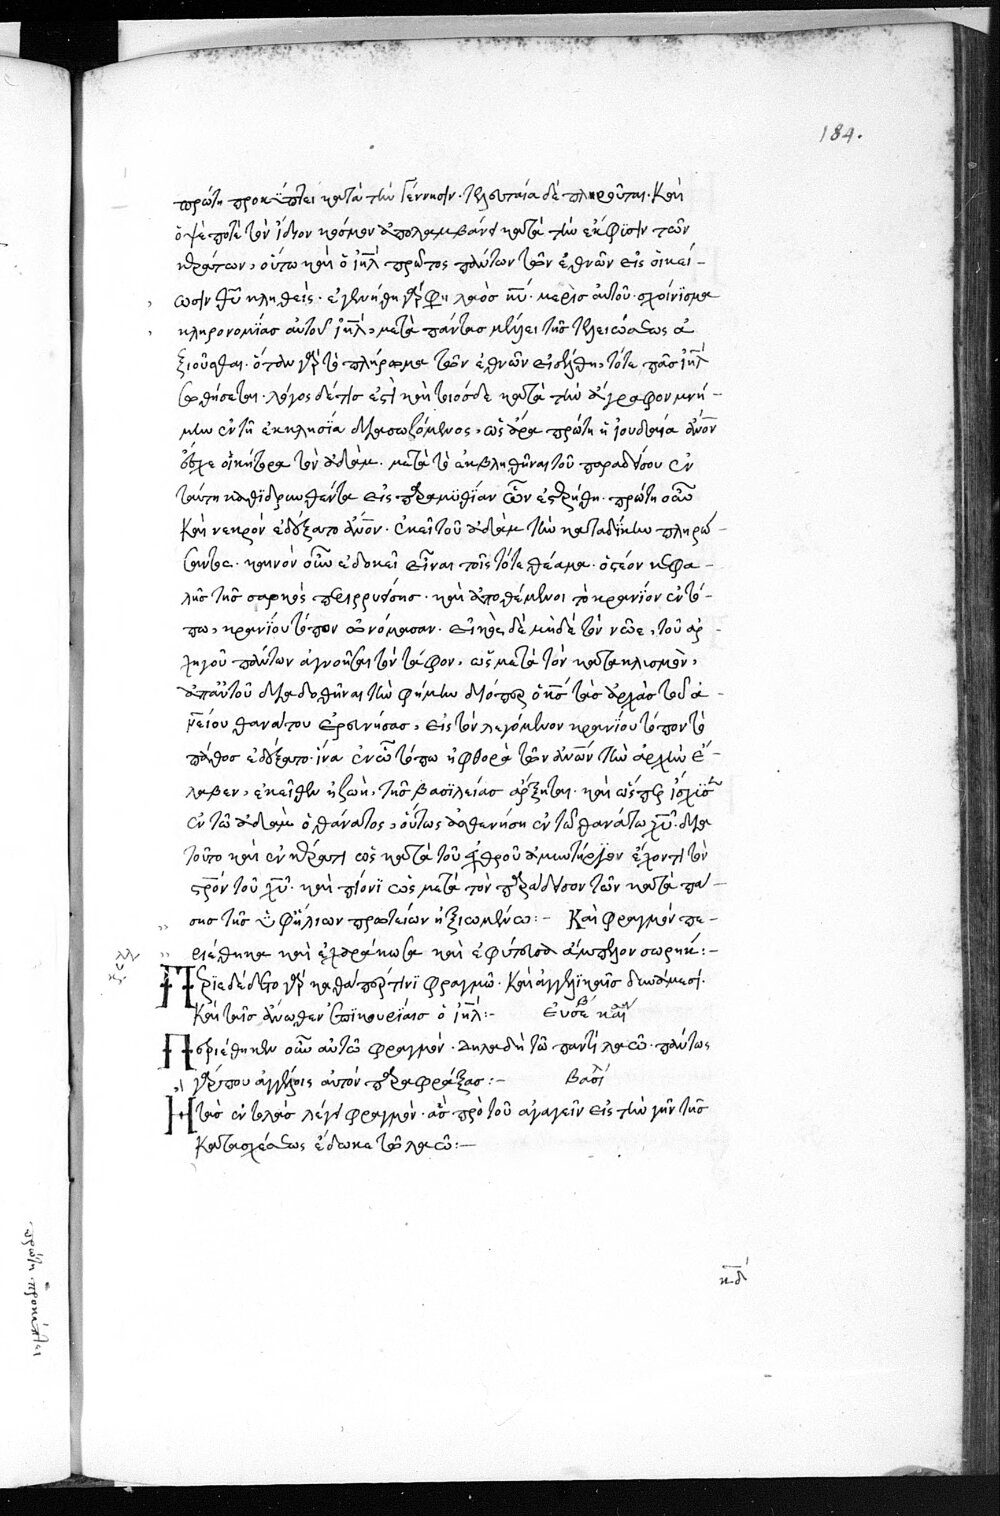 184.
πρώτη προκύπτει κατὰ τὴν γέννησιν· τελευταία δὲ πληροῦται· καὶ
ὀψέ ποτε τὸν ἴδιον κόσμον ἀπολαμβάνει κατὰ τὴν ἔκφυσιν τῶν
κεράτων, οὕτω καὶ ὁ ιηλ πρῶτος πάντων τῶν ἐθνῶν εἰς οἰκεί-
ωσιν θυ κληθείς· ἐγενήθη γὰρ φη λαὸς κυ· μερὶς αὐτοῦ· σχοίνισμα
κληρονομίας αὐτοῦ ιηλ, μετὰ πάντας μέλλει τῆς τελειώσεως ἀ
ξιοῦσθαι· ὅταν γὰρ τὸ πλήρωμα τῶν ἐθνῶν εἰσέλθη, τότε πᾶς ιηλ
σωθήσεται· λόγος δέ τις ἐστὶ καὶ τοιόσδε κατὰ τὴν ἄγραφον μνή-
μην ἐν τῆ ἐκκλησία διασωζόμενος, ὡς ἄρα πρώτη ἡ ἰουδαία ανον
ἔσχε οἰκήτορα τὸν ἀδάμ· μετὰ τὸ ἐκβληθῆναι τοῦ παραδείσου ἐν
ταύτη καθιδρυνθέντα εἰς παραμυθίαν ὧν ἐστερήθη· πρώτη οὖν
καὶ νεκρὸν ἐδέξατο ανον· ἐκεῖ τοῦ ἀδὰμ τὴν καταδίκην πληρώ-
σαντος· καινὸν οὖν ἐδόκει εἶναι τοῖς τότε θέαμα· ὀστέον κεφα-
λῆς τῆς σαρκὸς περιρρυείσης· καὶ ἀποθέμενοι τὸ κρανίον ἐν τό-
πω, κρανίου τόπον ὠνόμασαν· εἰκὸς δὲ μηδὲ τὸν νῶε, τοῦ ἀρ-
χηγοῦ πάντων ἀγνοῆσαι τὸν τάφον, ὡς μετὰ τὸν κατακλισμὸν,
ἀπαὐτοῦ διαδοθῆναι τὴν φήμην διόπερ ὁ κς τὰς ἀρχὰς τοῦ ἀ-
νείου θανάτου ἐρευνήσας, εἰς τὸν λεγόμενον κρανίου τόπον τὸ
πάθος ἐδέξατο· ἵνα ἐν ὧ τόπω ἡ φθορὰ τῶν ανων τὴν ἀρχὴν ἔ-
λαβεν, ἐκεῖθεν ἡ ζωὴ, τῆς βασιλείας ἄρξηται· καὶ ὥσπερ ἴσχυσ
ἐν τῶ ἀδὰμ ὁ θάνατος, οὕτως ἀσθενήση ἐν τῶ θανάτω χυ· δια
τοῦτο καὶ ἐν κέρατι ὡς κατὰ τοῦ ἐχθροῦ ἀμυντήριον ἔχοντι τὸν
στρον τοῦ χυ· καὶ πίονι ὡς μετὰ τὸν παράδεισον τῶν κατὰ πά-
σης τῆς ὑφήλιων πρωτείων ἠξιωμένω:- Καὶ φραγμὸν πε-
ριέθηκα καὶ ἐχαράκωσα καὶ ἐφύτευσα ἄμπελον σωρήκ:-
Περιεδέδετο γὰρ καθάπερ τινὶ φραγμῶ· καὶ ἀγγελικαῖς δυνάμεσι·
καὶ ταῖς ἄνωθεν ἐπικουρίαις ὁ ιηλ:- Εὐσεβ
Περιέθηκεν οὖν αὐτῶ φραγμόν· δηλαδὴ τῶ παντὶ λαῶ· πάντως
γάρ που ἀγγέλοις αὐτὸν παραφράξας:- βασι
Ἢ τὰς ἐντολὰς λέγει φραγμὸν· ἃς πρὸ τοῦ ἀγαγεῖν εἰς τὴν γῆν τῆς
κατασχέσεως ἔδωκε τῶ λαῶ:-
κδ
πρώτη προκύπτει